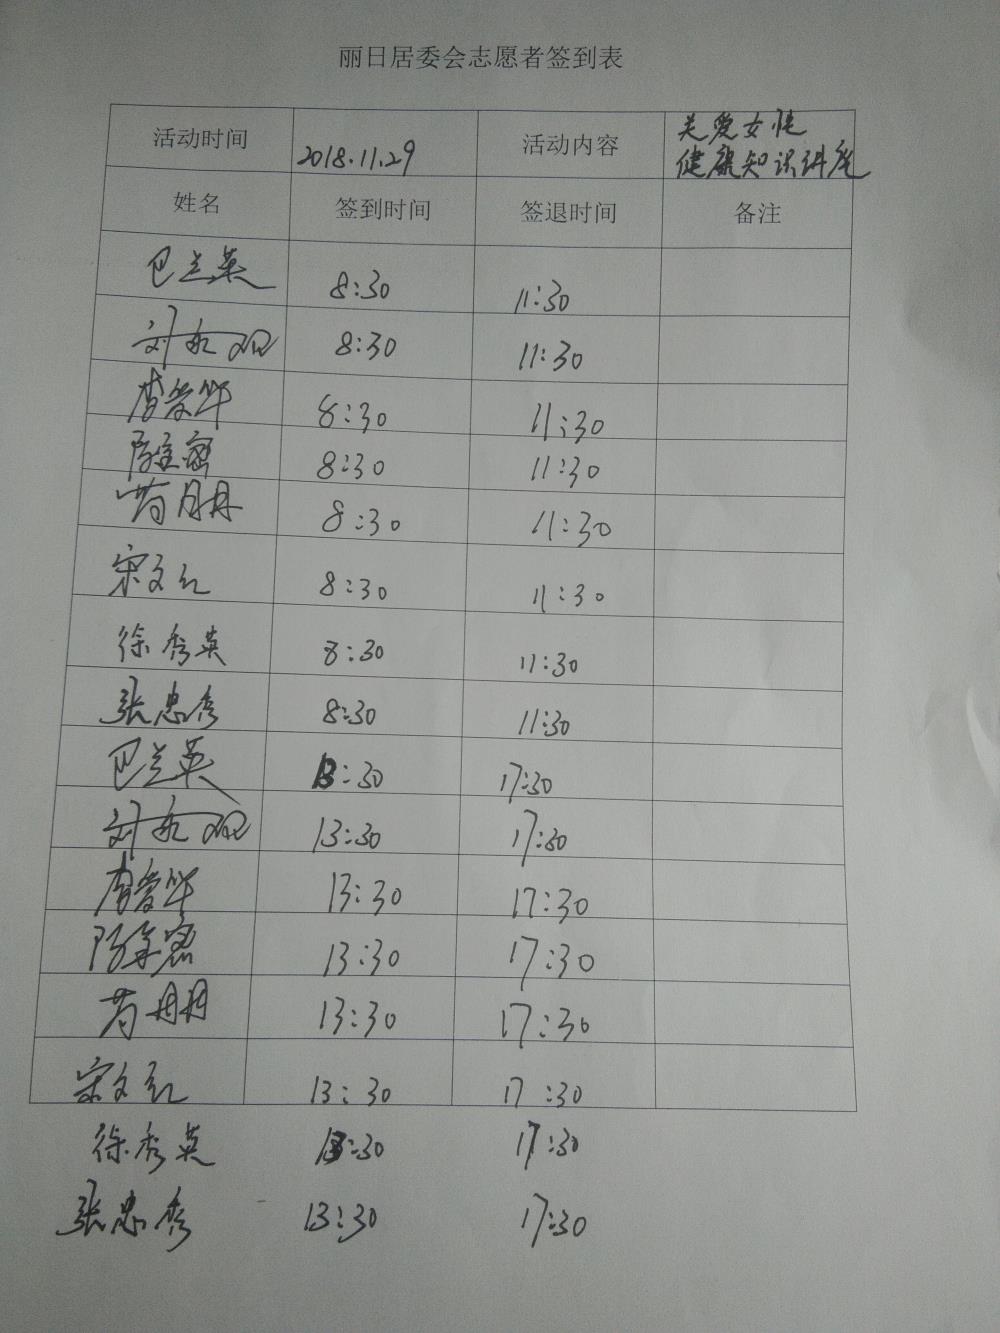 丽日居委会志愿者签到表
活动时间 2018.11.29 活动内容 关爱女性
健康知识讲座
姓名 签到时间 签退时间 备注
巴兰英 8:30 11:30
刘 8:30 11:30
李爱华 8:30 11:30
陈 8:30 11:30
8:30 11:30
宋文红 8:30 11:30
徐秀英 8:30 11:30
张忠秀 8:30 11:30
巴兰英 13:30 17:30
刘 13:30 17:30
李爱华 13:30 17:30
陈 13:30 17:30
13:30 17:30
宋文红 13:30 17:30
徐秀英 13:30 17:30
张忠秀 13:30 17:30